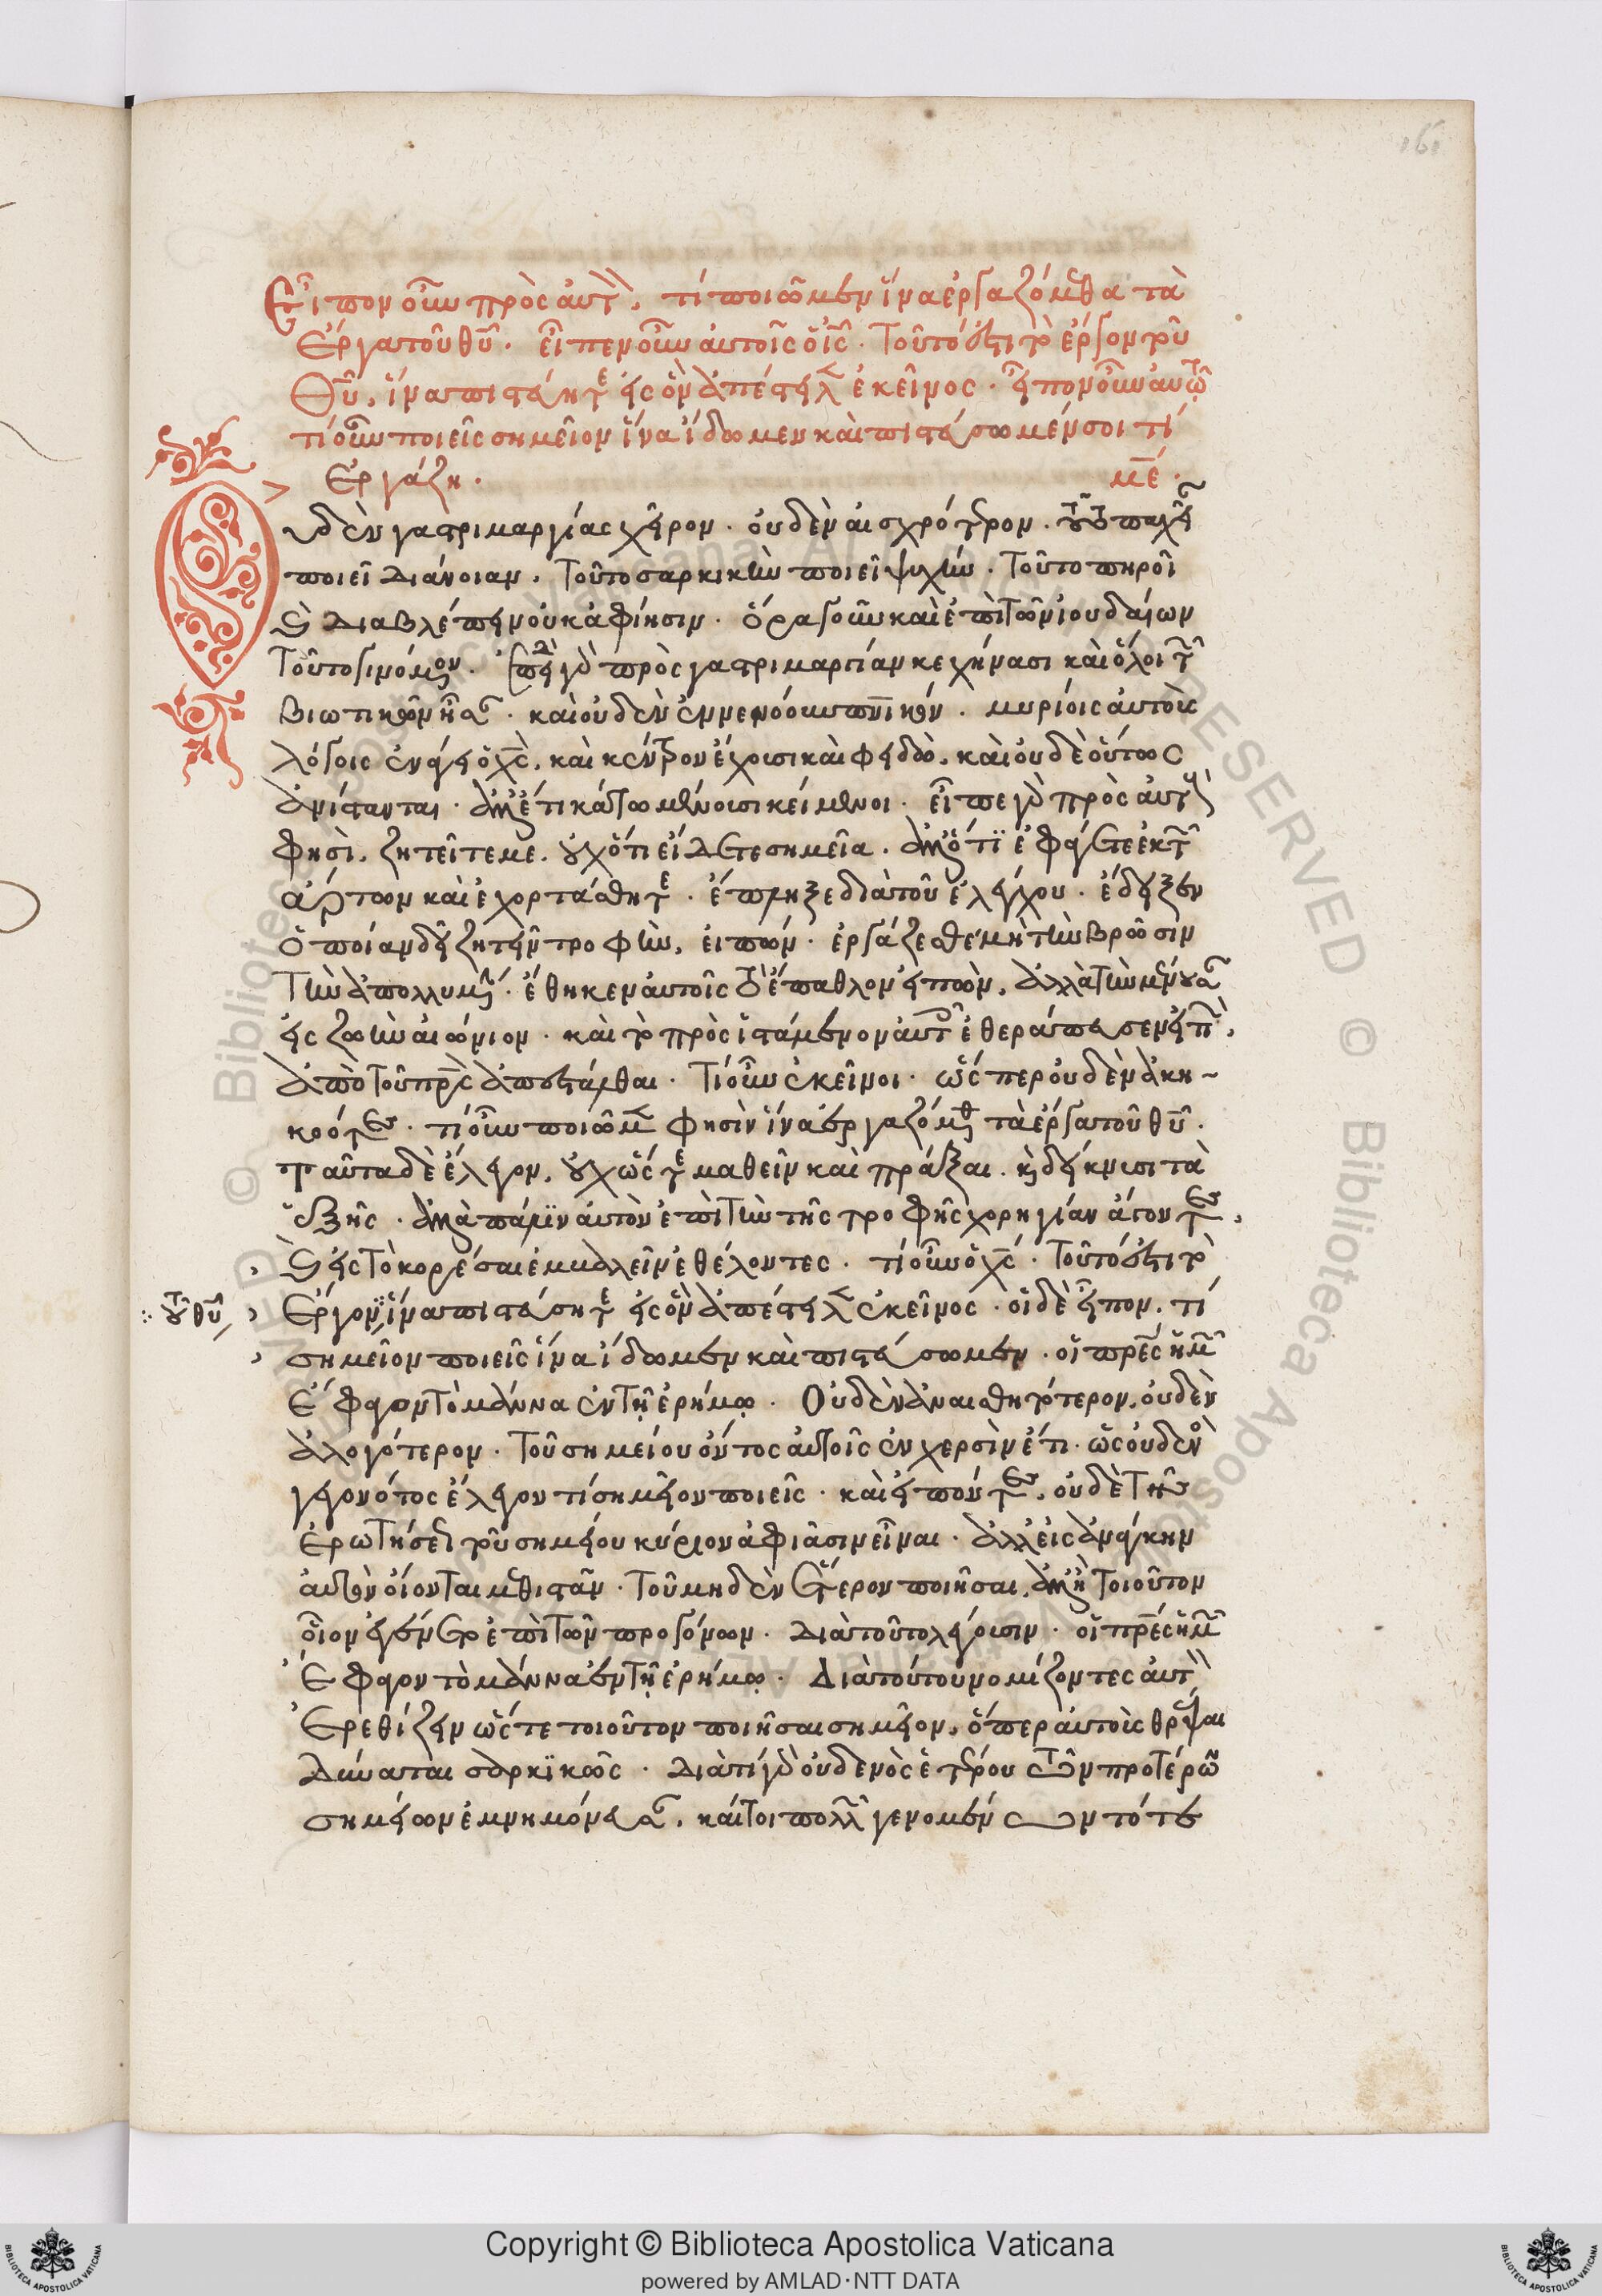 161
Εἶπον οὖν πρὸς αὐτόν, τί ποιῶμεν ἵνα ἐργαζόμεθα τὰ
ἔργα τοῦ θῦ. εἶπεν οὖν αὐτοῖς ὁ ις. Τοῦτό ἐστι τὸ ἔργον τοῦ
Θῦ, ἵνα πιστεύητε εἰς ὃν ἀπέστειλεν ἐκεῖνος. εἶπον οὖν αὐτῷ
τί οὖν ποιεῖς σημεῖον ἵνα ἴδωμεν καὶ πιστεύσωμέν σοι τί
ἐργάζῃ. με.
Οὐδὲν γαστριμαργίας χεῖρον. οὐδὲν αἰσχρότερον. τοῦτο παχεῖαν
ποιεῖ διάνοιαν. Τοῦτο σαρκικὴν ποιεῖ ψυχήν. Τοῦτο πηροῖ
καὶ διαβλέπειν οὐκ ἀφίησιν. ὅρα γοῦν καὶ ἐπὶ τῶν ἰουδαίων
τοῦτο γινόμενον. ἐπειδὴ γὰρ πρὸς γαστριμαργίαν κεχήνασι καὶ ὅλοι τῶν
βιωτικῶν ἦσαν. καὶ οὐδὲν ἐνενόουν πνικόν. μυρίοις αὐτοὺς
λόγοις ἐνάγει ὁ χς, καὶ κέντρον ἔχουσι καὶ φειδὼ, καὶ οὐδὲ οὕτως
ἀνίστανται. ἀλλ' ἔτι κάτω μένουσι κείμενοι. εἶπε γὰρ πρὸς αὐτοὺς
φησὶ, ζητεῖτέ με. οὐχ ὅτι εἴδετε σημεῖα. ἀλλ' ὅτι ἐφάγετε ἐκ τῶν
ἄρτων καὶ ἐχορτάσθητε. ἔπληξε διὰ τοῦ ἐλέγχου. ἔδειξεν
ὁποίαν δεῖ ζητεῖν τροφὴν, εἰπών. ἐργάζεσθε μὴ τὴν βρῶσιν
τὴν ἀπολλυμένην. ἔθηκεν αὐτοῖς καὶ ἔπαθλον εἰπὼν, ἀλλὰ τὴν μένουσαν
εἰς ζωὴν αἰώνιον. καὶ τὸ πρὸς ἱστάμενον αὐτῶν ἐθεράπευσεν εἰπὼν,
ἀπὸ τοῦ πρς ἀπεστάλθαι. Τί οὖν ἐκεῖνοι. ὥσπερ οὐδὲν ἀκη-
κοότες. τί οὖν ποιῶμεν φησὶν ἵνα ἐργαζόμεθα τὰ ἔργα τοῦ θῦ.
Ταῦτα δὲ ἔλεγον, οὐχ ὥστε μαθεῖν καὶ πρᾶξαι. καὶ δείκνυσι τὰ
ἑξῆς. ἀλλὰ πάλιν αὐτὸν ἐπὶ τὴν τῆς τροφῆς χορηγίαν ἄγοντες,
καὶ εἰς τὸ κορέσαι ἐκκαλεῖν ἐθέλοντες. τί οὖν ὁ χς. Τοῦτό ἐστι τὸ
ἔργον ἵνα πιστεύσητε εἰς ὃν ἀπέστειλεν ἐκεῖνος. οἱ δὲ εἶπον. τί
τοῦ θῦ
σημεῖον ποιεῖς ἵνα ἴδωμεν καὶ πιστεύσωμεν. οἱ πρες ἡμῶν
ἔφαγον τὸ μάννα ἐν τῇ ἐρήμῳ. Οὐδὲν ἀναισθητότερον, οὐδὲν
ἀλογότερον. τοῦ σημείου ὄντος αὐτοῖς ἐν χερσὶν ἔτι. ὡς οὐδενὸς
γεγονότος ἔλεγον τί σημεῖον ποιεῖς. καὶ εἰπόντες, οὐδὲ τῆς
ἐρωτήσεως τοῦ σημείου κύριον ἀφιᾶσιν εἶναι. ἀλλ' εἰς ἀνάγκην
αὐτὸν οἴονται μεθιστᾶν. τοῦ μηδὲν ἕτερον ποιῆσαι, ἀλλ' ἢ τοιοῦτον
οἷον ἐγένετο ἐπὶ τῶν προγόνων. Διὰ τοῦτο λέγουσιν. οἱ πρες ἡμῶν
ἔφαγον τὸ μάννα ἐν τῇ ἐρήμῳ. Διὰ τούτου νομίζοντες αὐτὸν
ἐρεθίζειν ὥστε τοιοῦτον ποιῆσαι σημεῖον, ὅπερ αὐτοὺς θρέψαι
δύναται σαρκικῶς. Διὰ τί γὰρ οὐδενὸς ἑτέρου τῶν προτέρων
σημείων ἐμνημόνευσαν, καίτοι πολλῶν γενομένων τότε
Copyright © Biblioteca Apostolica Vaticana
powered by AMLAD·NTT DATA